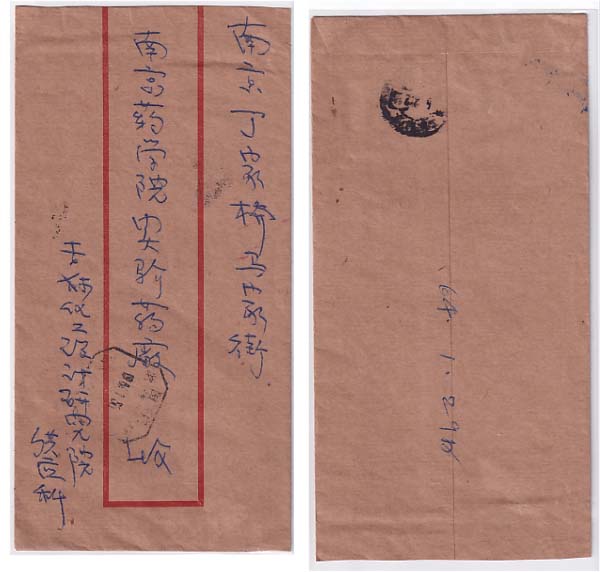 南京丁家桥马家街
南京药学院实验药廠
收
吉林化工设计研究院
供应科
64.1.29